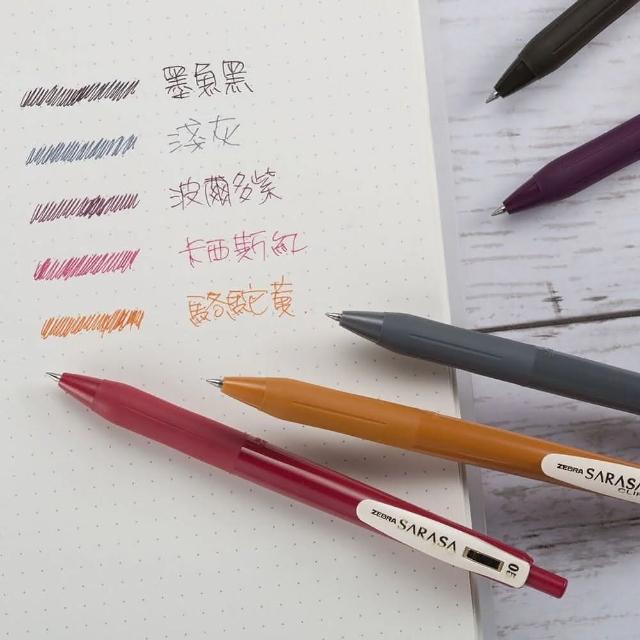 墨魚黑
淺灰
波爾多紫
卡西斯紅
駱駝黃
ZEBRA SARASA
CLIP
ZEBRA SARASA